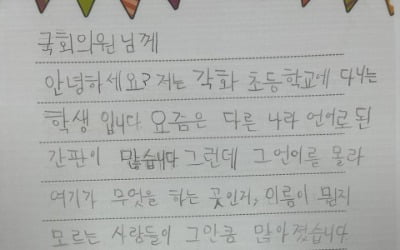 국회의원님께
안녕하세요? 저는 각화 초등학교에 다니는
학생 입니다 요즘은 다른 나라 언어로 된
간판이 많습니다 그런데 그 언어를 몰라
여기가 무엇을 하는 곳인지, 이름이 뭔지
모르는 사람들이 그만큼 많아졌습니다